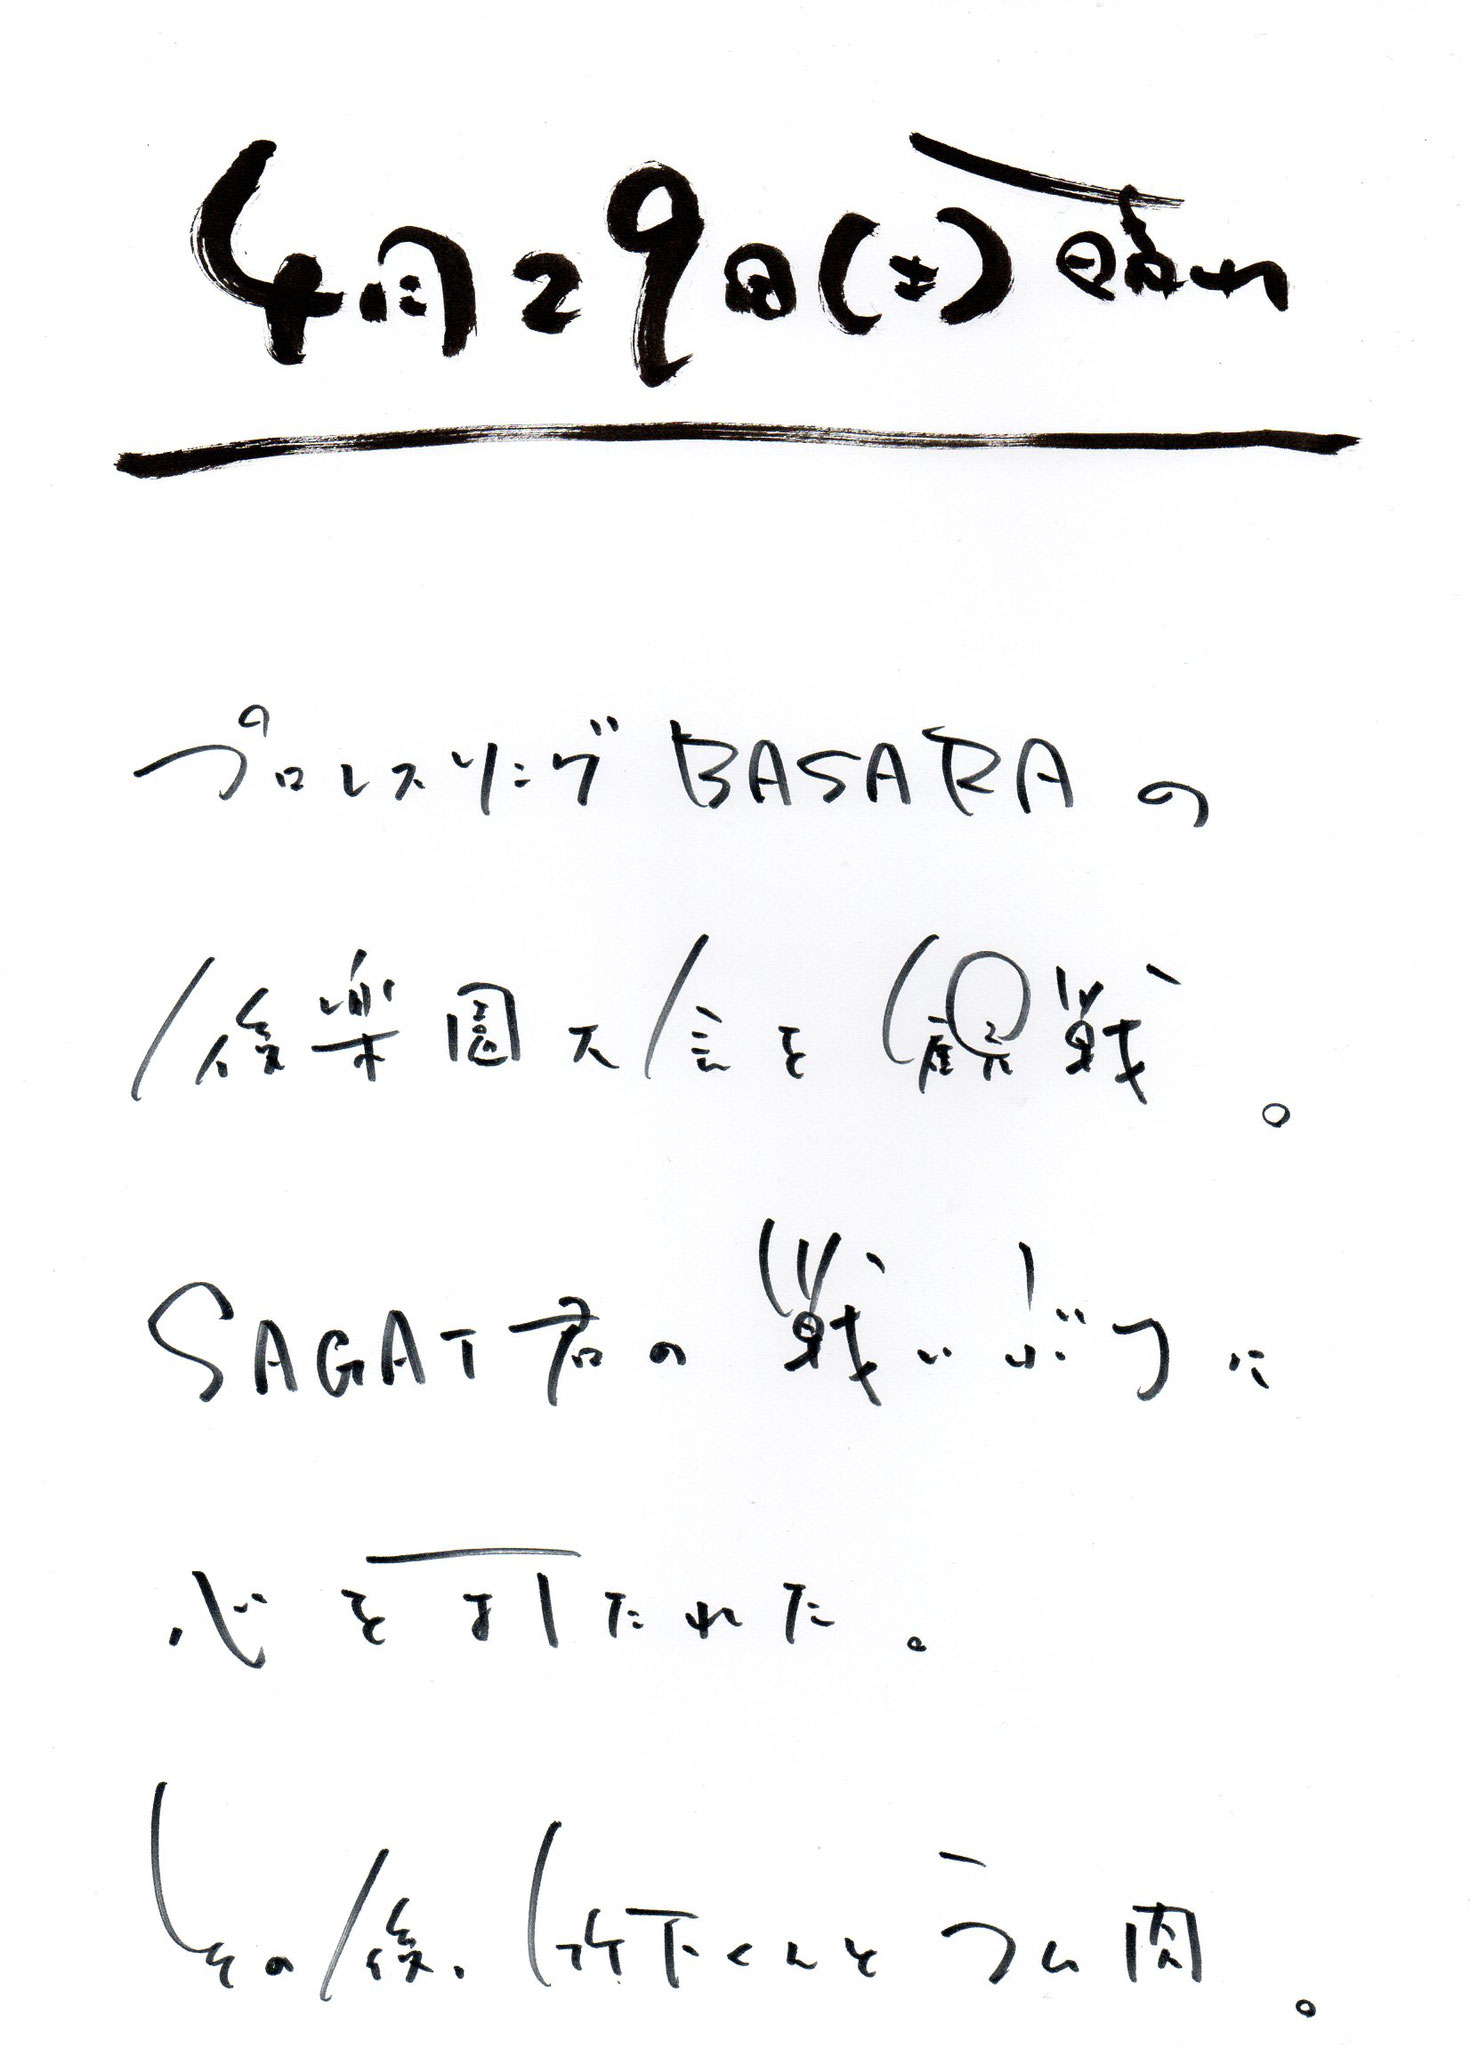 4月29日(土)晴れ
プロレスリングBASARAの
後楽園大会を観戦。
SAGAT君の戦いぶりに
心を打たれた。
その後、竹下くんとラム肉。